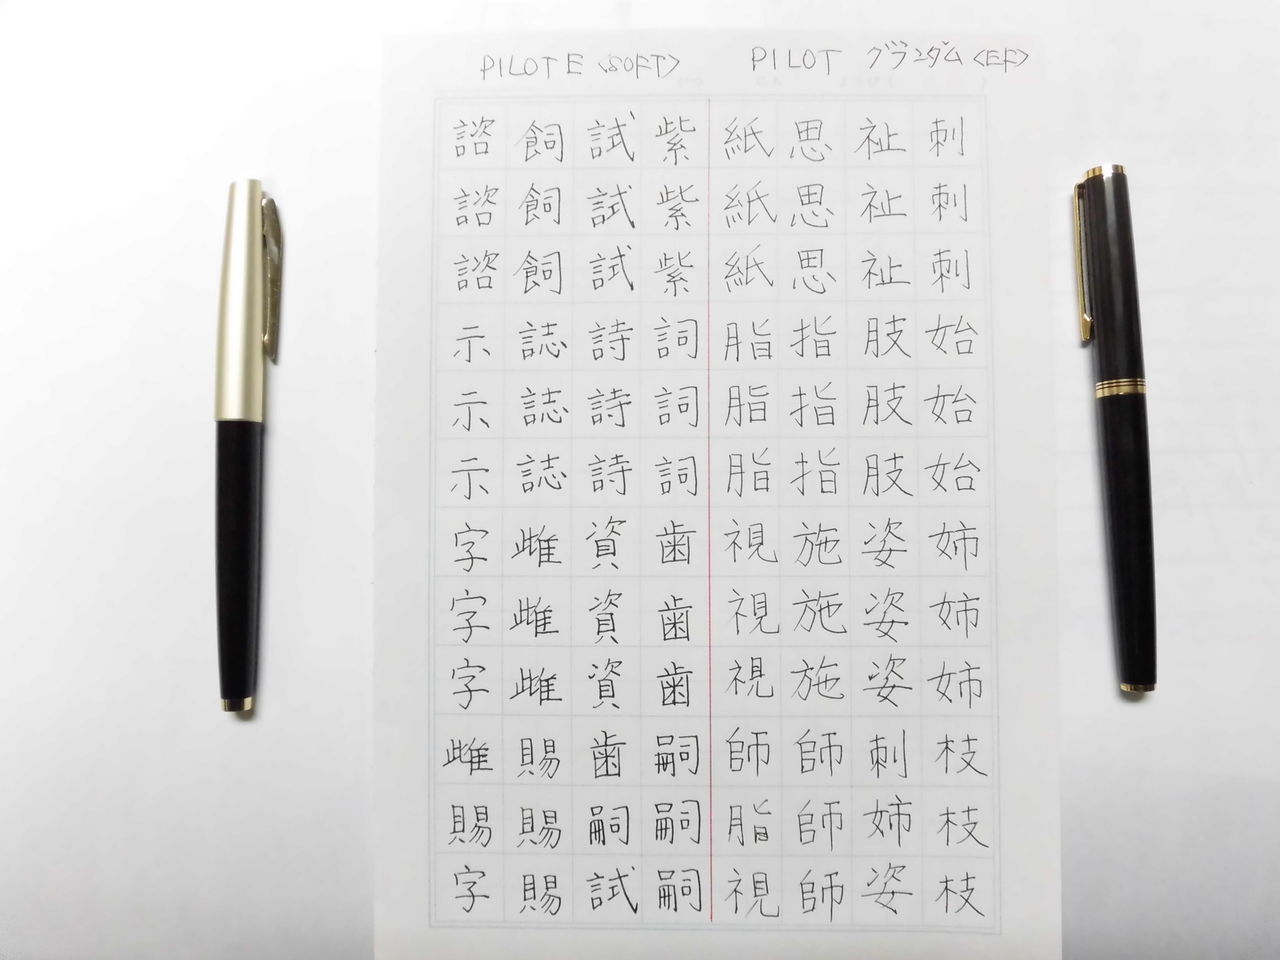 PILOT E <SOFT>
PILOT グランダム <EF>
刺刺刺始始始姉姉姉枝枝枝
祉祉祉肢肢肢姿姿姿刺姉姿
思思思指指指施施施師師師
紙紙紙脂脂脂視視視師脂視
紫紫紫詞詞詞歯歯歯嗣嗣嗣
試試試詩詩詩資資資歯嗣試
飼飼飼誌誌誌雌雌雌賜賜賜
諮諮諮示示示字字字雌賜字